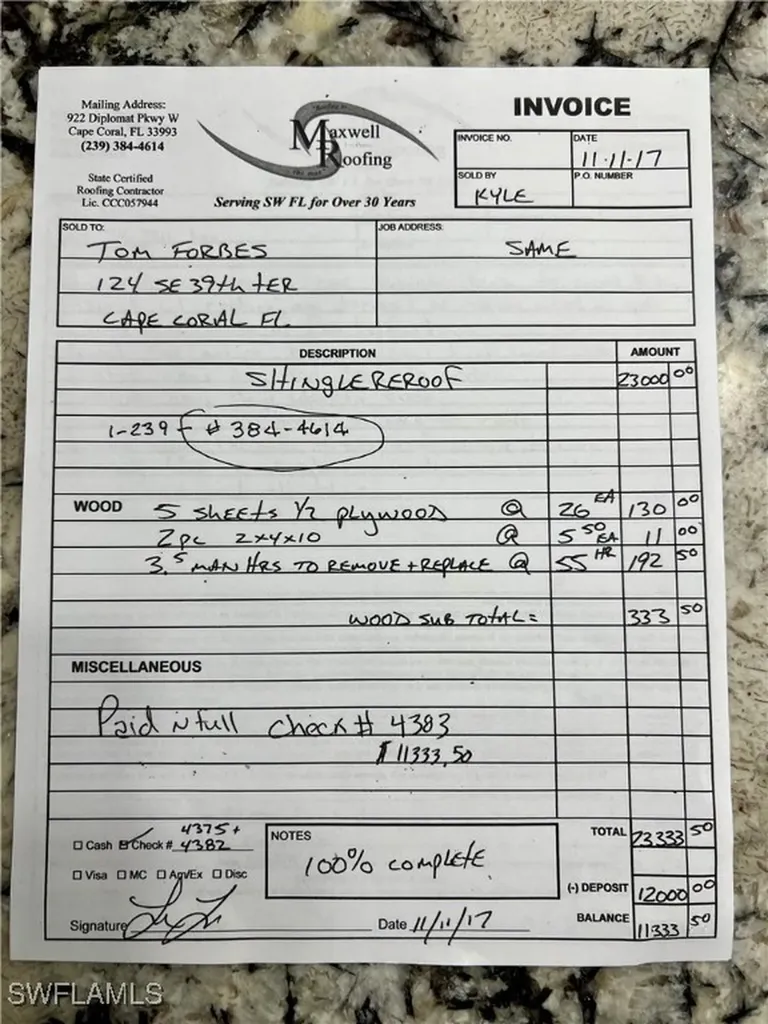 Mailing Address:
922 Diplomat Pkwy W
Cape Coral, FL 33993
(239) 384-4614
State Certified
Roofing Contractor
Lic. CCC057944
Maxwell
Roofing
Serving SW FL for Over 30 Years
INVOICE
INVOICE NO. DATE
11-11-17
SOLD BY P.O. NUMBER
KYLE
SOLD TO: JOB ADDRESS:
TOM FORBES SAME
124 SE 39th TER
CAPE CORAL FL
DESCRIPTION AMOUNT
SHINGLE REROOF 23000 00
1-239- # 384-4614
WOOD 5 SHEETS 1/2 PLYWOOD @ 26 EA 130 00
2 PC 2x4x10 @ 5 50 EA 11 00
3.5 MAN HRS TO REMOVE + REPLACE @ 55 HR 192 50
WOOD SUB TOTAL = 333 50
MISCELLANEOUS
Paid in full Check # 4383
$11333.50
4375 +
Cash Check # 4382
Visa MC Am/Ex Disc
NOTES
100% COMPLETE
TOTAL 23333 50
(-) DEPOSIT 12000 00
BALANCE 11333 50
Signature Date 11/11/17
SWFLAMLS